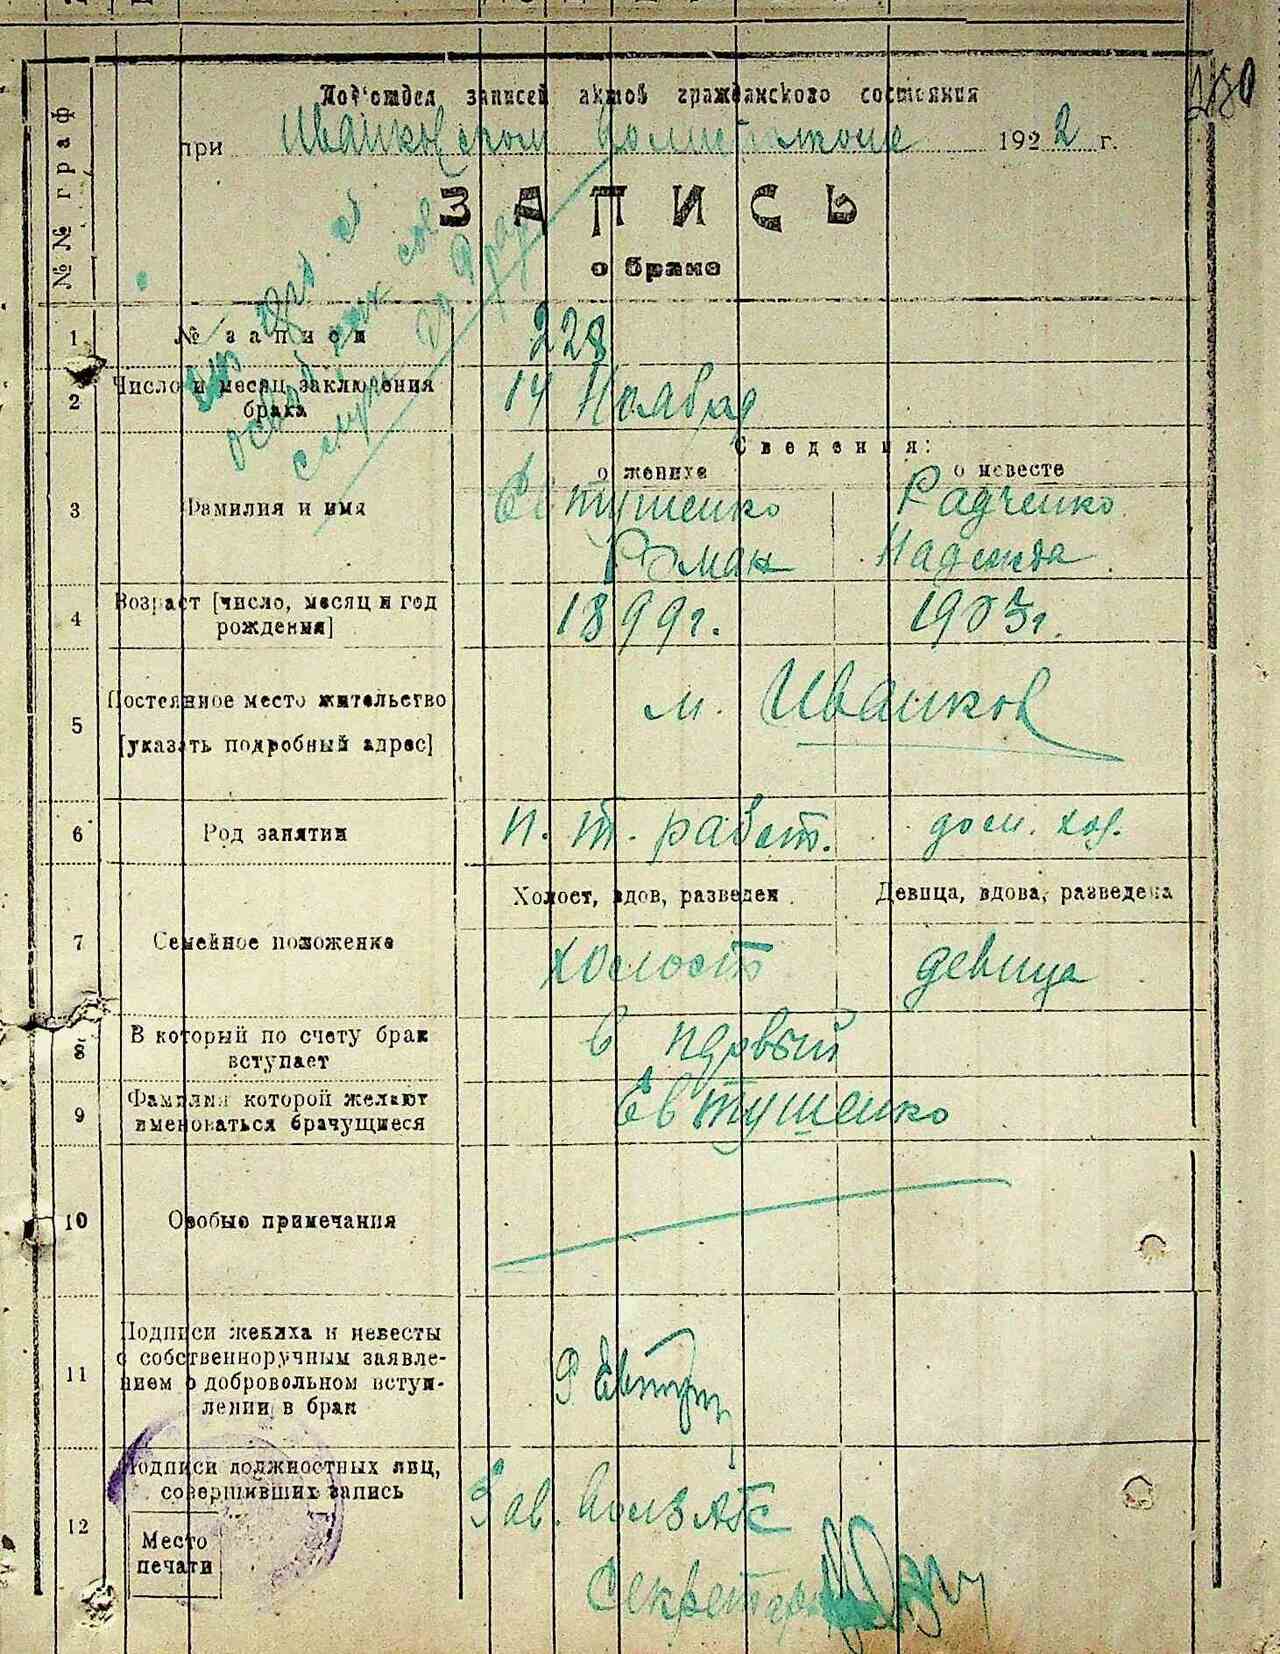 280
Под'отдел записей актов гражданского состояния
при Иванковском Волисполкоме 1922 г.
ЗАПИСЬ
о браке
№№ граф
1 № записи 228
2 Число и месяц заключения брака 14 Ноября
Сведения:
о женихе о невесте
3 Фамилия и имя Евтушенко Радченко
Роман Надежда
4 Возраст [число, месяц и год рождения] 1899г. 1903г.
5 Постоянное место жительство м. Иванков
[указать подробный адрес]
6 Род занятии п. т. работ. дом. хоз.
Холост, вдов, разведен Девица, вдова, разведена
7 Семейное положение холост девица
8 В который по счету брак вступает в первый
9 Фамилия которой желают именоваться брачущиеся Евтушенко
10 Особые примечания
11 Подписи жениха и невесты
с собственноручным заявле-
нием о добровольном вступ-
лении в брак
Р Евтуш
Подписи должностных лиц,
совершивших запись
12 Зав. ВолЗАГС
Место
печати
Секретарь